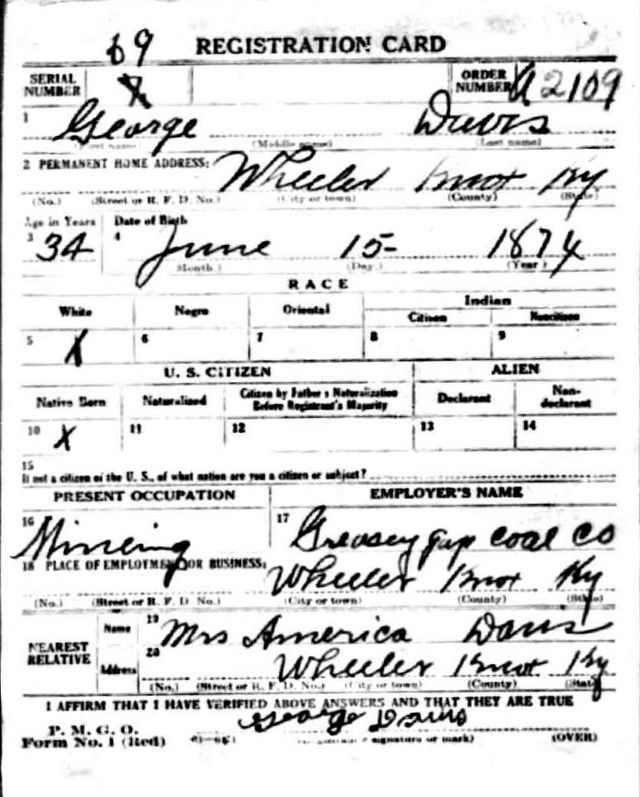 69 REGISTRATION CARD
SERIAL NUMBER X ORDER NUMBER A 2109
1 George Davis
(First name) (Middle name) (Last name)
2 PERMANENT HOME ADDRESS: Wheeler Knot Ky
(No.) (Street or R. F. D. No.) (City or town) (County) (State)
Age in Years Date of Birth
3 34 4 June 15 1874
(Month.) (Day.) (Year.)
RACE
White Negro Oriental Indian
Citizen Noncitizen
5 X 6 7 8 9
U. S. CITIZEN ALIEN
Native Born Naturalized Citizen by Father's Naturalization Before Registrant's Majority Declarant Non-declarant
10 X 11 12 13 14
15
If not a citizen of the U. S., of what nation are you a citizen or subject?
PRESENT OCCUPATION EMPLOYER'S NAME
16 Mineing 17 Greasey gap coal co
18 PLACE OF EMPLOYMENT OR BUSINESS: Wheeler Knot Ky
(No.) (Street or R. F. D. No.) (City or town) (County) (State)
NEAREST RELATIVE Name 19 Mrs America Davis
Address 20 Wheeler Knot Ky
(No.) (Street or R. F. D. No.) (City or town) (County) (State)
I AFFIRM THAT I HAVE VERIFIED ABOVE ANSWERS AND THAT THEY ARE TRUE
P. M. G. O. George Davis
Form No. 1 (Red) signature or mark) (OVER)